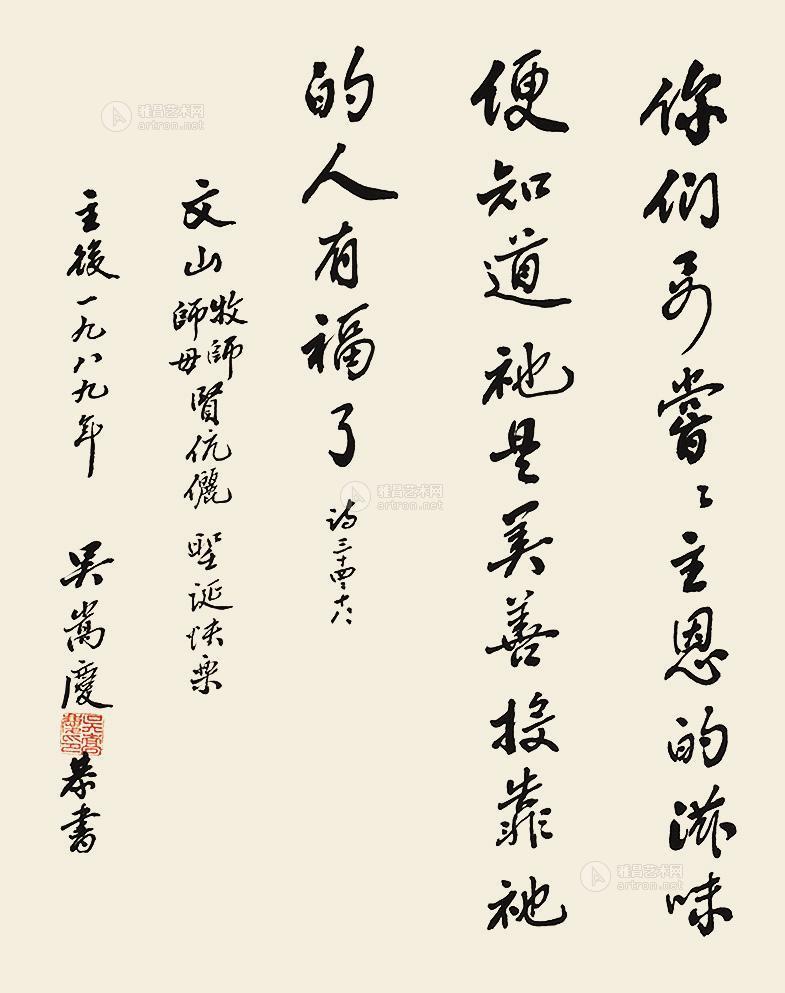 你们可嘗々主恩的滋味
便知道祂是美善投靠祂
的人有福了
诗三十四
文山牧師師母賢伉儷 聖誕快樂
主後一九八九年 吳嵩慶 恭書
吳嵩慶印
雅昌艺术网
artron.net
雅昌艺术网
artron.net
雅昌艺术网
artron.net